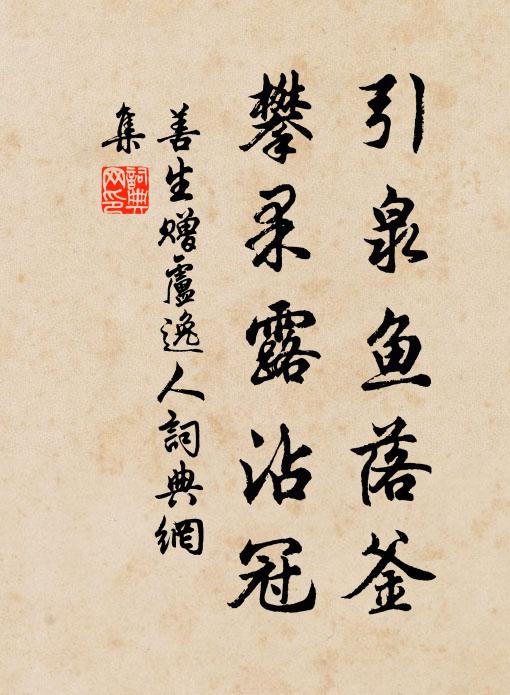 引泉鱼落釜
攀果露沾冠
善生赠盧逸人詞典網
集
詞典
网印